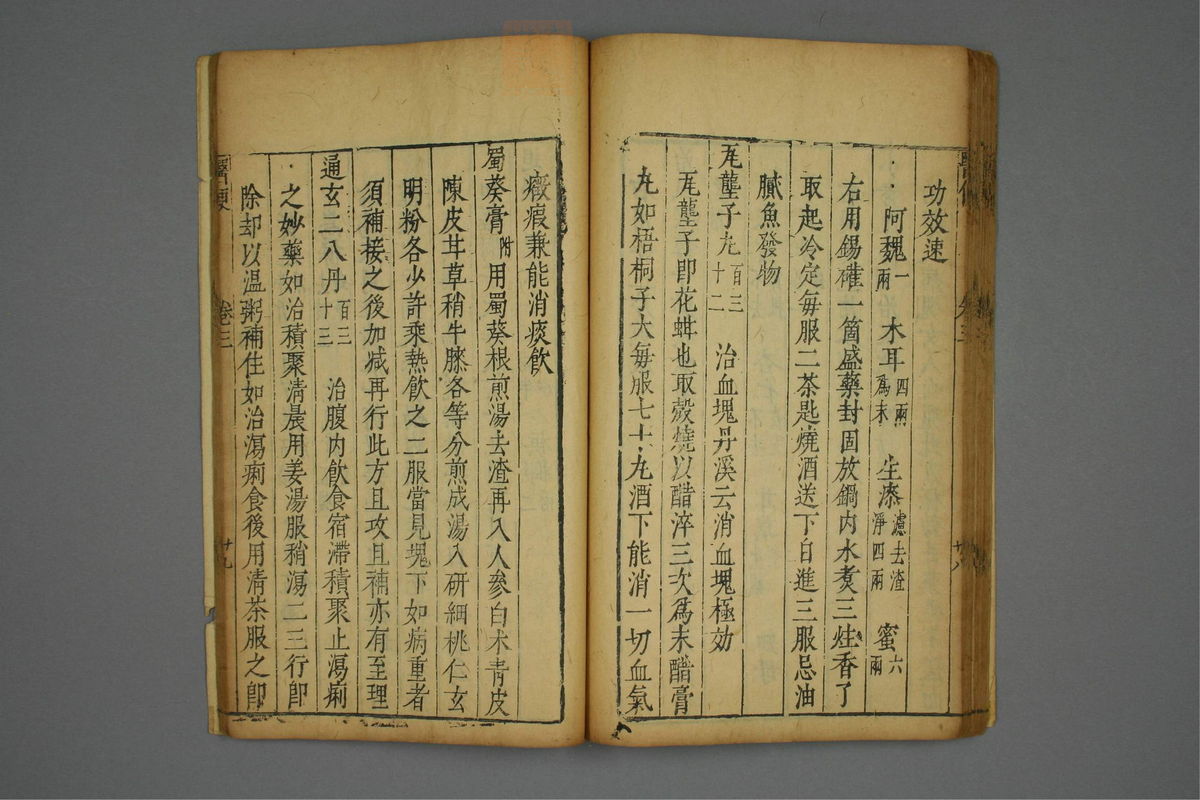 功效速
阿魏一兩 木耳四兩爲末 生漆濾去渣淨四兩 蜜六兩
右用錫礶一箇盛藥封固放鍋内水煑三炷香了
取起冷定毎服二茶匙燒酒送下日進三服忌油
膩魚發物
瓦壟子丸百三十二 治血塊丹溪云消血塊極効
瓦壟子即花蚶也取殻燒以醋淬三次爲末醋膏
丸如梧桐子大毎服七十丸酒下能消一切血氣
癥瘕兼能消痰飲
蜀葵膏附 用蜀葵根煎湯去渣再入人參白术青皮
陳皮甘草稍牛膝各等分煎成湯入研細桃仁玄
明粉各少許乘熱飲之二服當見塊下如病重者
須補接之後加减再行此方且攻且補亦有至理
通玄二八丹百三十三 治腹内飲食宿滯積聚止瀉痢
之妙藥如治積聚清晨用姜湯服稍瀉二三行即
除却以温粥補住如治瀉痢食後用清茶服之即
醫便 卷三 廿九